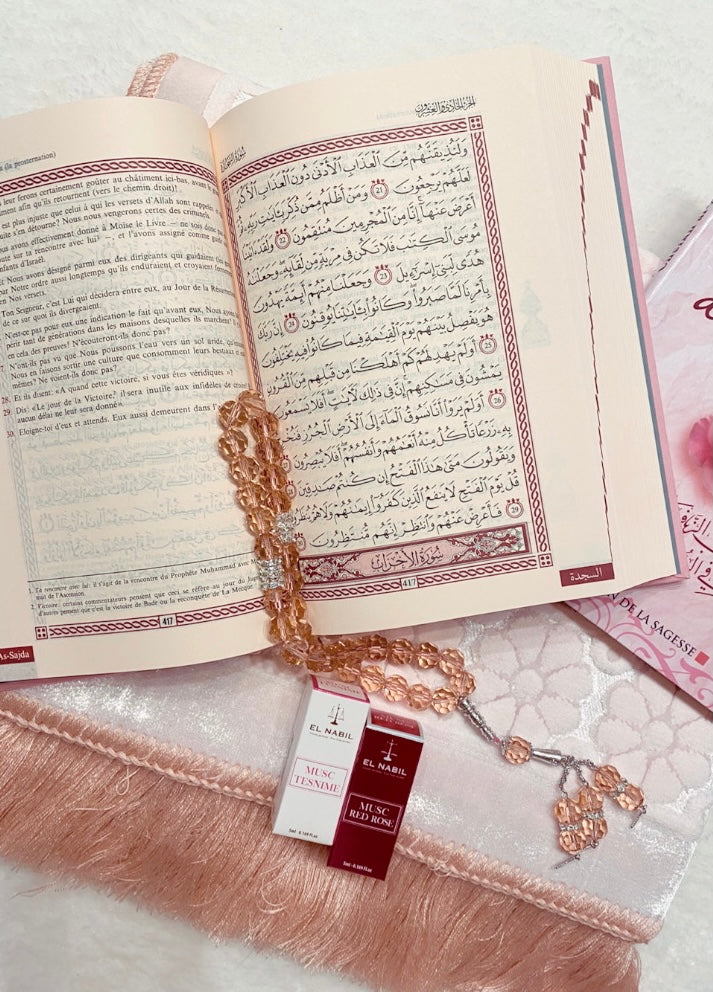 (la prosternation)
leur ferons certainement goûter au châtiment ici-bas, avant
afin qu'ils retournent (vers le chemin droit)!
est plus injuste que celui à qui les versets d'Allah sont rappelés
s'en détourne? Nous nous vengerons certes des criminels.
avons effectivement donné à Moïse le Livre — ne sois donc
doute sur ta rencontre avec lui —, et l'avons assigné comme
d'Israël.
Et Nous avons désigné parmi eux des dirigeants qui guidaient
Notre ordre aussi longtemps qu'ils enduraient et croyaient
en Nos versets.
Ton Seigneur, c'est Lui qui décidera entre eux, au Jour de la
de ce sur quoi ils divergeaient.
N'est-ce pas pour eux une indication le fait qu'avant eux, Nous
périr tant de générations dans les maisons desquelles ils marchent?
en cela des preuves! N'écouteront-ils donc pas?
N'ont-ils pas vu que Nous poussons l'eau vers un sol aride,
Nous en faisons sortir une culture que consomment leurs bestiaux
mêmes? Ne voient-ils donc pas?
28. Et ils disent: «A quand cette victoire, si vous êtes véridiques»?
29. Dis: «Le jour de la Victoire, il sera inutile aux infidèles de
aucun délai ne leur sera donné».
30. Eloigne-toi d'eux et attends. Eux aussi demeurent dans
1. Ta rencontre avec lui: il s'agit de la rencontre du Prophète Muhammad avec
de l'Ascension.
2. Victoire: certains commentateurs pensent que ceci se réfère au jour du
d'autres pensent que c'est la victoire de Badr ou la reconquête de La Mecque
417
As-Sajda
الجزء الحادي والعشرون
سورة السجدة
وَلَنُذِيقَنَّهُم مِّنَ الْعَذَابِ الْأَدْنَىٰ دُونَ الْعَذَابِ الْأَكْبَرِ
لَعَلَّهُمْ يَرْجِعُونَ 21 وَمَنْ أَظْلَمُ مِمَّن ذُكِّرَ بِآيَاتِ رَبِّهِ ثُمَّ
أَعْرَضَ عَنْهَا إِنَّا مِنَ الْمُجْرِمِينَ مُنتَقِمُونَ 22 وَلَقَدْ آتَيْنَا
مُوسَى الْكِتَابَ فَلَا تَكُن فِي مِرْيَةٍ مِّن لِّقَائِهِ وَجَعَلْنَاهُ
هُدًى لِّبَنِي إِسْرَائِيلَ 23 وَجَعَلْنَا مِنْهُمْ أَئِمَّةً يَهْدُونَ
بِأَمْرِنَا لَمَّا صَبَرُوا وَكَانُوا بِآيَاتِنَا يُوقِنُونَ 24 إِنَّ رَبَّكَ
هُوَ يَفْصِلُ بَيْنَهُمْ يَوْمَ الْقِيَامَةِ فِيمَا كَانُوا فِيهِ يَخْتَلِفُونَ
25 أَوَلَمْ يَهْدِ لَهُمْ كَمْ أَهْلَكْنَا مِن قَبْلِهِم مِّنَ الْقُرُونِ
يَمْشُونَ فِي مَسَاكِنِهِمْ إِنَّ فِي ذَٰلِكَ لَآيَاتٍ أَفَلَا يَسْمَعُونَ
26 أَوَلَمْ يَرَوْا أَنَّا نَسُوقُ الْمَاءَ إِلَى الْأَرْضِ الْجُرُزِ فَنُخْرِجُ
بِهِ زَرْعًا تَأْكُلُ مِنْهُ أَنْعَامُهُمْ وَأَنفُسُهُمْ أَفَلَا يُبْصِرُونَ
وَيَقُولُونَ مَتَىٰ هَٰذَا الْفَتْحُ إِن كُنتُمْ صَادِقِينَ
قُلْ يَوْمَ الْفَتْحِ لَا يَنفَعُ الَّذِينَ كَفَرُوا إِيمَانُهُمْ وَلَا هُمْ يُنظَرُونَ
29 فَأَعْرِضْ عَنْهُمْ وَانتَظِرْ إِنَّهُم مُّنتَظِرُونَ
سورة الأحزاب
417
السجدة
N DE LA SAGESSE
EL NABIL
MUSC
TESNIME
5ml - 0.169 fl.oz
EL NABIL
MUSC
RED ROSE
5ml - 0.169 fl.oz